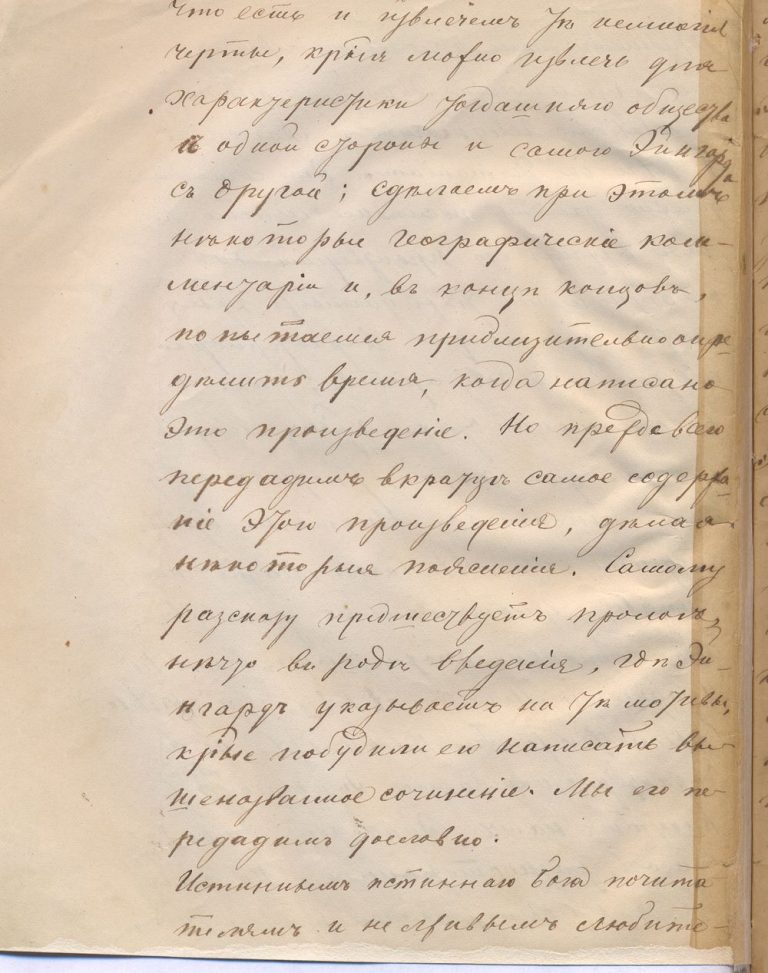 что есть и извлечемъ тѣ немногія
черты, крыя можно извлечь для
характеристики тогдашняго общества
съ одной стороны и самого Эйнгарда
съ другой; сдѣлаемъ при этомъ
нѣкоторые географическіе ком-
ментаріи и, въ концѣ концовъ,
попытаемся приблизительно опре-
дѣлить время, когда написано
это произведеніе. Но прежде всего
передадимъ вкратцѣ самое содержа-
ніе этого произведенія, дѣлая
нѣкоторыя поясненія. Самому
разсказу предшествуетъ прологъ,
нѣчто въ родѣ введенія, гдѣ Эй-
нгардъ указываетъ на тѣ мотивы,
крые побудили его написать вы-
шеназванное сочиненіе. Мы его пе-
редадимъ дословно.
Истиннымъ истиннаго Бога почита
телямъ и нелживымъ любите-